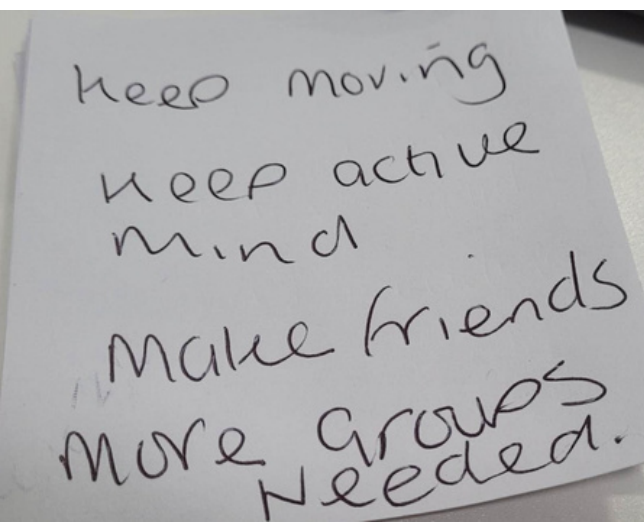 Keep moving
Keep active
Mind
Make friends
More Groups
Needed.